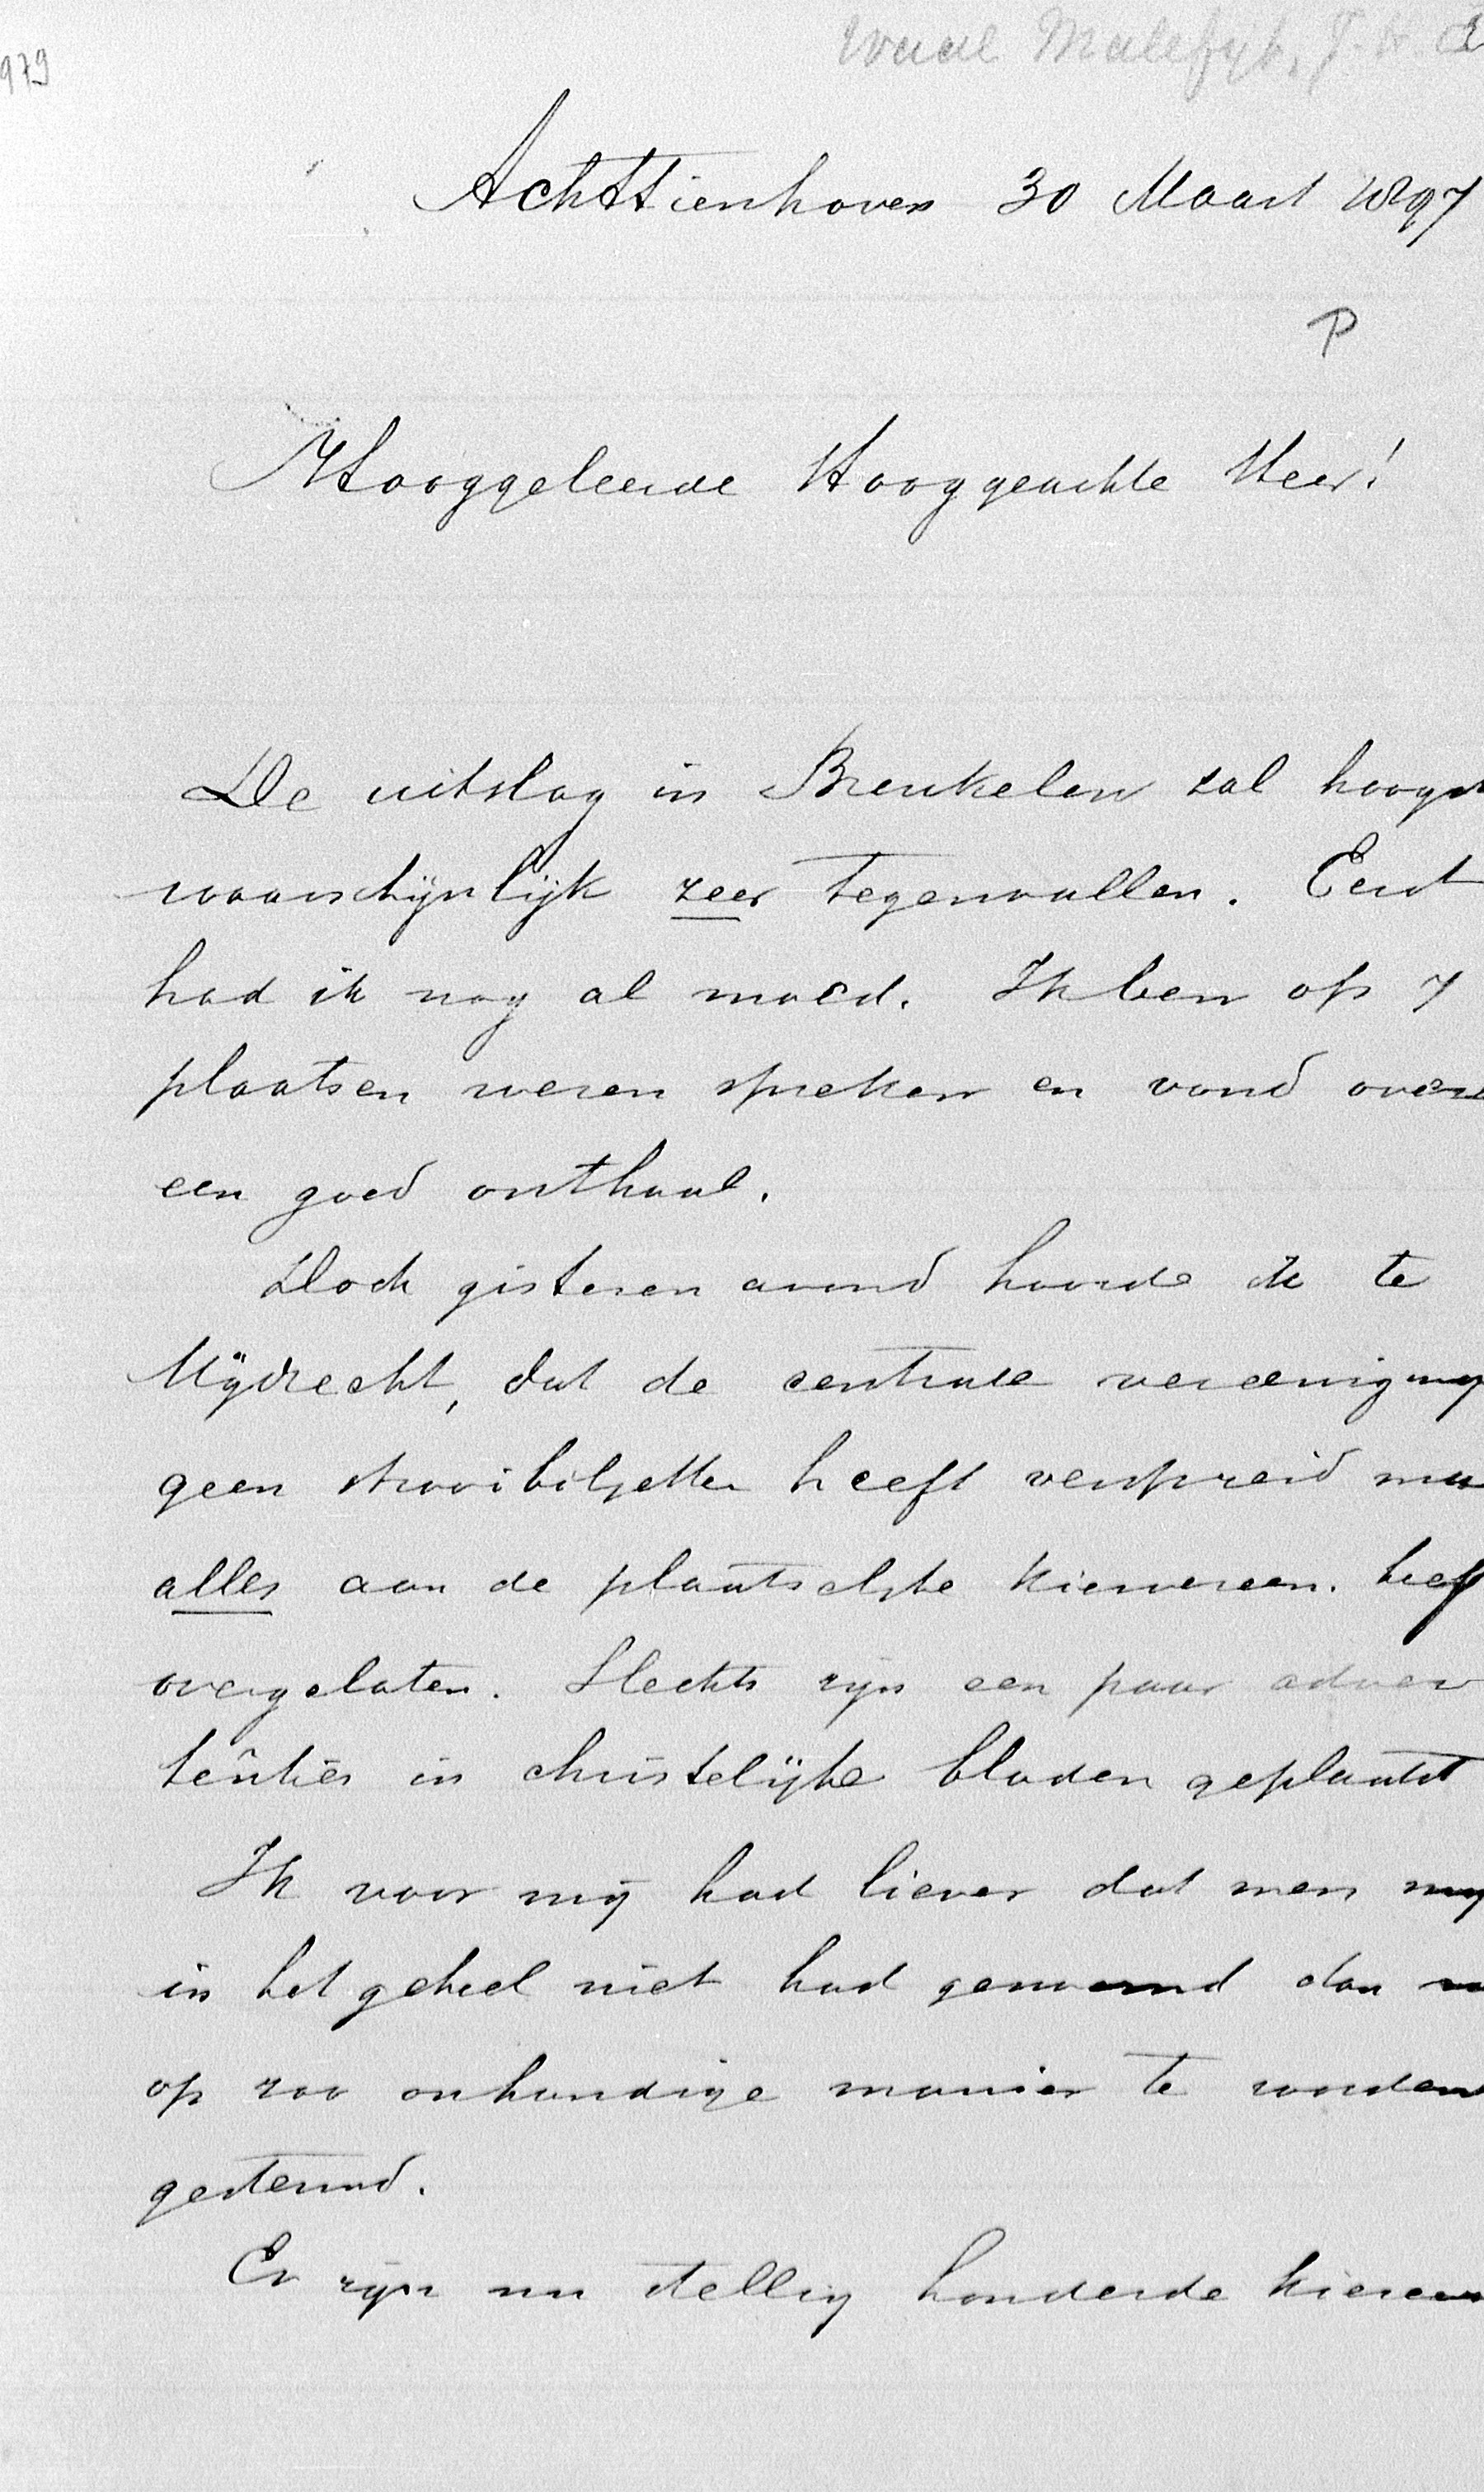 979
Waal Malefijt, J. H. d
Achttienhoven 30 Maart 1897
P
Hooggeleerde Hooggeachte Heer!
De uitslag in Breukelen zal hoogst
waarschijnlijk zeer tegenvallen. Eerst
had ik nog al moed. Ik ben op 7
plaatsen wezen spreken en vond overa
een goed onthaal.
Doch gisteren avond hoorde ik te
Mijdrecht, dat de centrale vereeniging
geen strooibiljetten heeft verspreid maa
alles aan de plaatselijke kiesvereen. heef
overgelaten. Slechts zijn een paar adver
tentiën in christelijke bladen geplaatst
Ik voor mij had liever dat men mij
in het geheel niet had genoemd dan
op zoo onhandige manier te worden
gesteund.
Er zijn nu stellig honderde kiezers